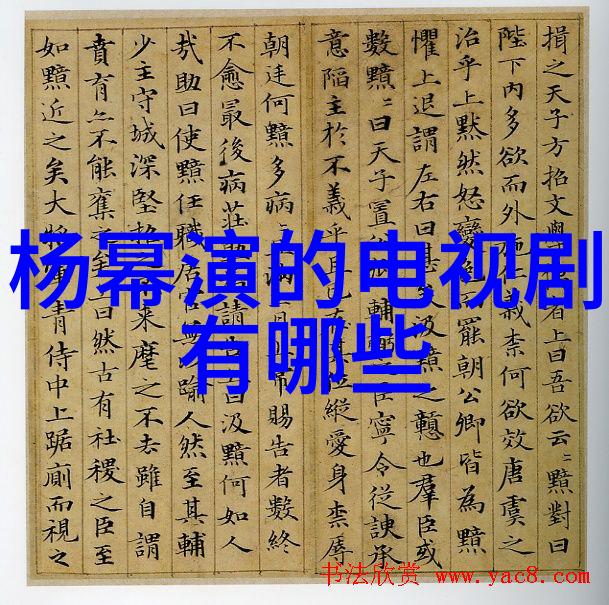 杨幂演的电视剧
有哪些
損之天子方招文學者上曰吾欲云〻黯對曰
陛下內多欲而外施仁義柰何欲效唐虞之
治乎上黙然怒變色而罷朝公卿皆為黯
懼上退謂左右曰甚矣汲黯之戇也羣臣或
數黯〻曰天子置輔弼之臣寧令從諛承
意陷主於不義乎且已在其位縱愛身柰辱
朝廷何黯多病〻且滿三月上常賜告者數終
不愈最後病莊助請告曰汲黯何如人
㦲助曰使黯任職居官無以踰人然至其輔
少主守城深堅招來麾之不去雖自謂
賁育之不能奪之矣上曰然古有社稷之臣至
如黯近之矣大將軍青侍中上踞廁而視之
书法欣赏 www.yac8.com